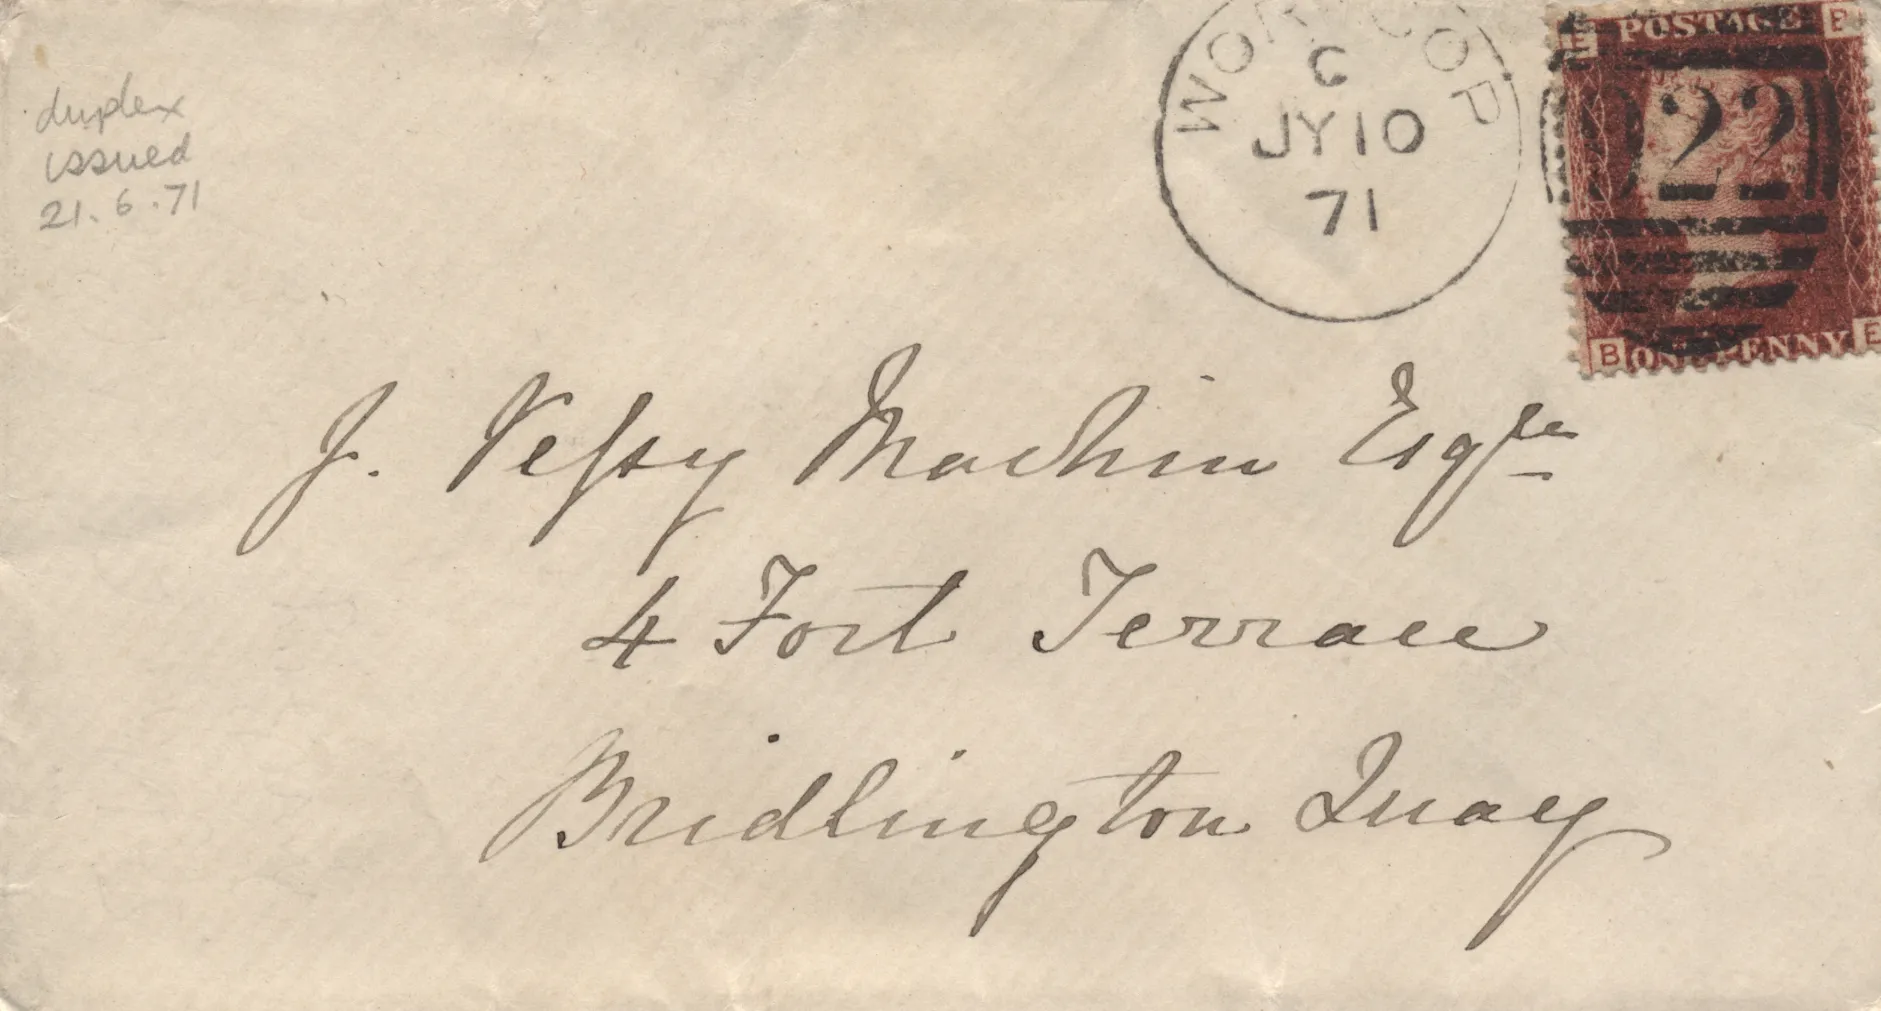 duplex
issued
21.6.71
WORKSOP
C
JY 10
71
E POSTAGE B
922
B ONE PENNY E
J. Vessy Machin Esqre
4 Fort Terrace
Bridlington Quay